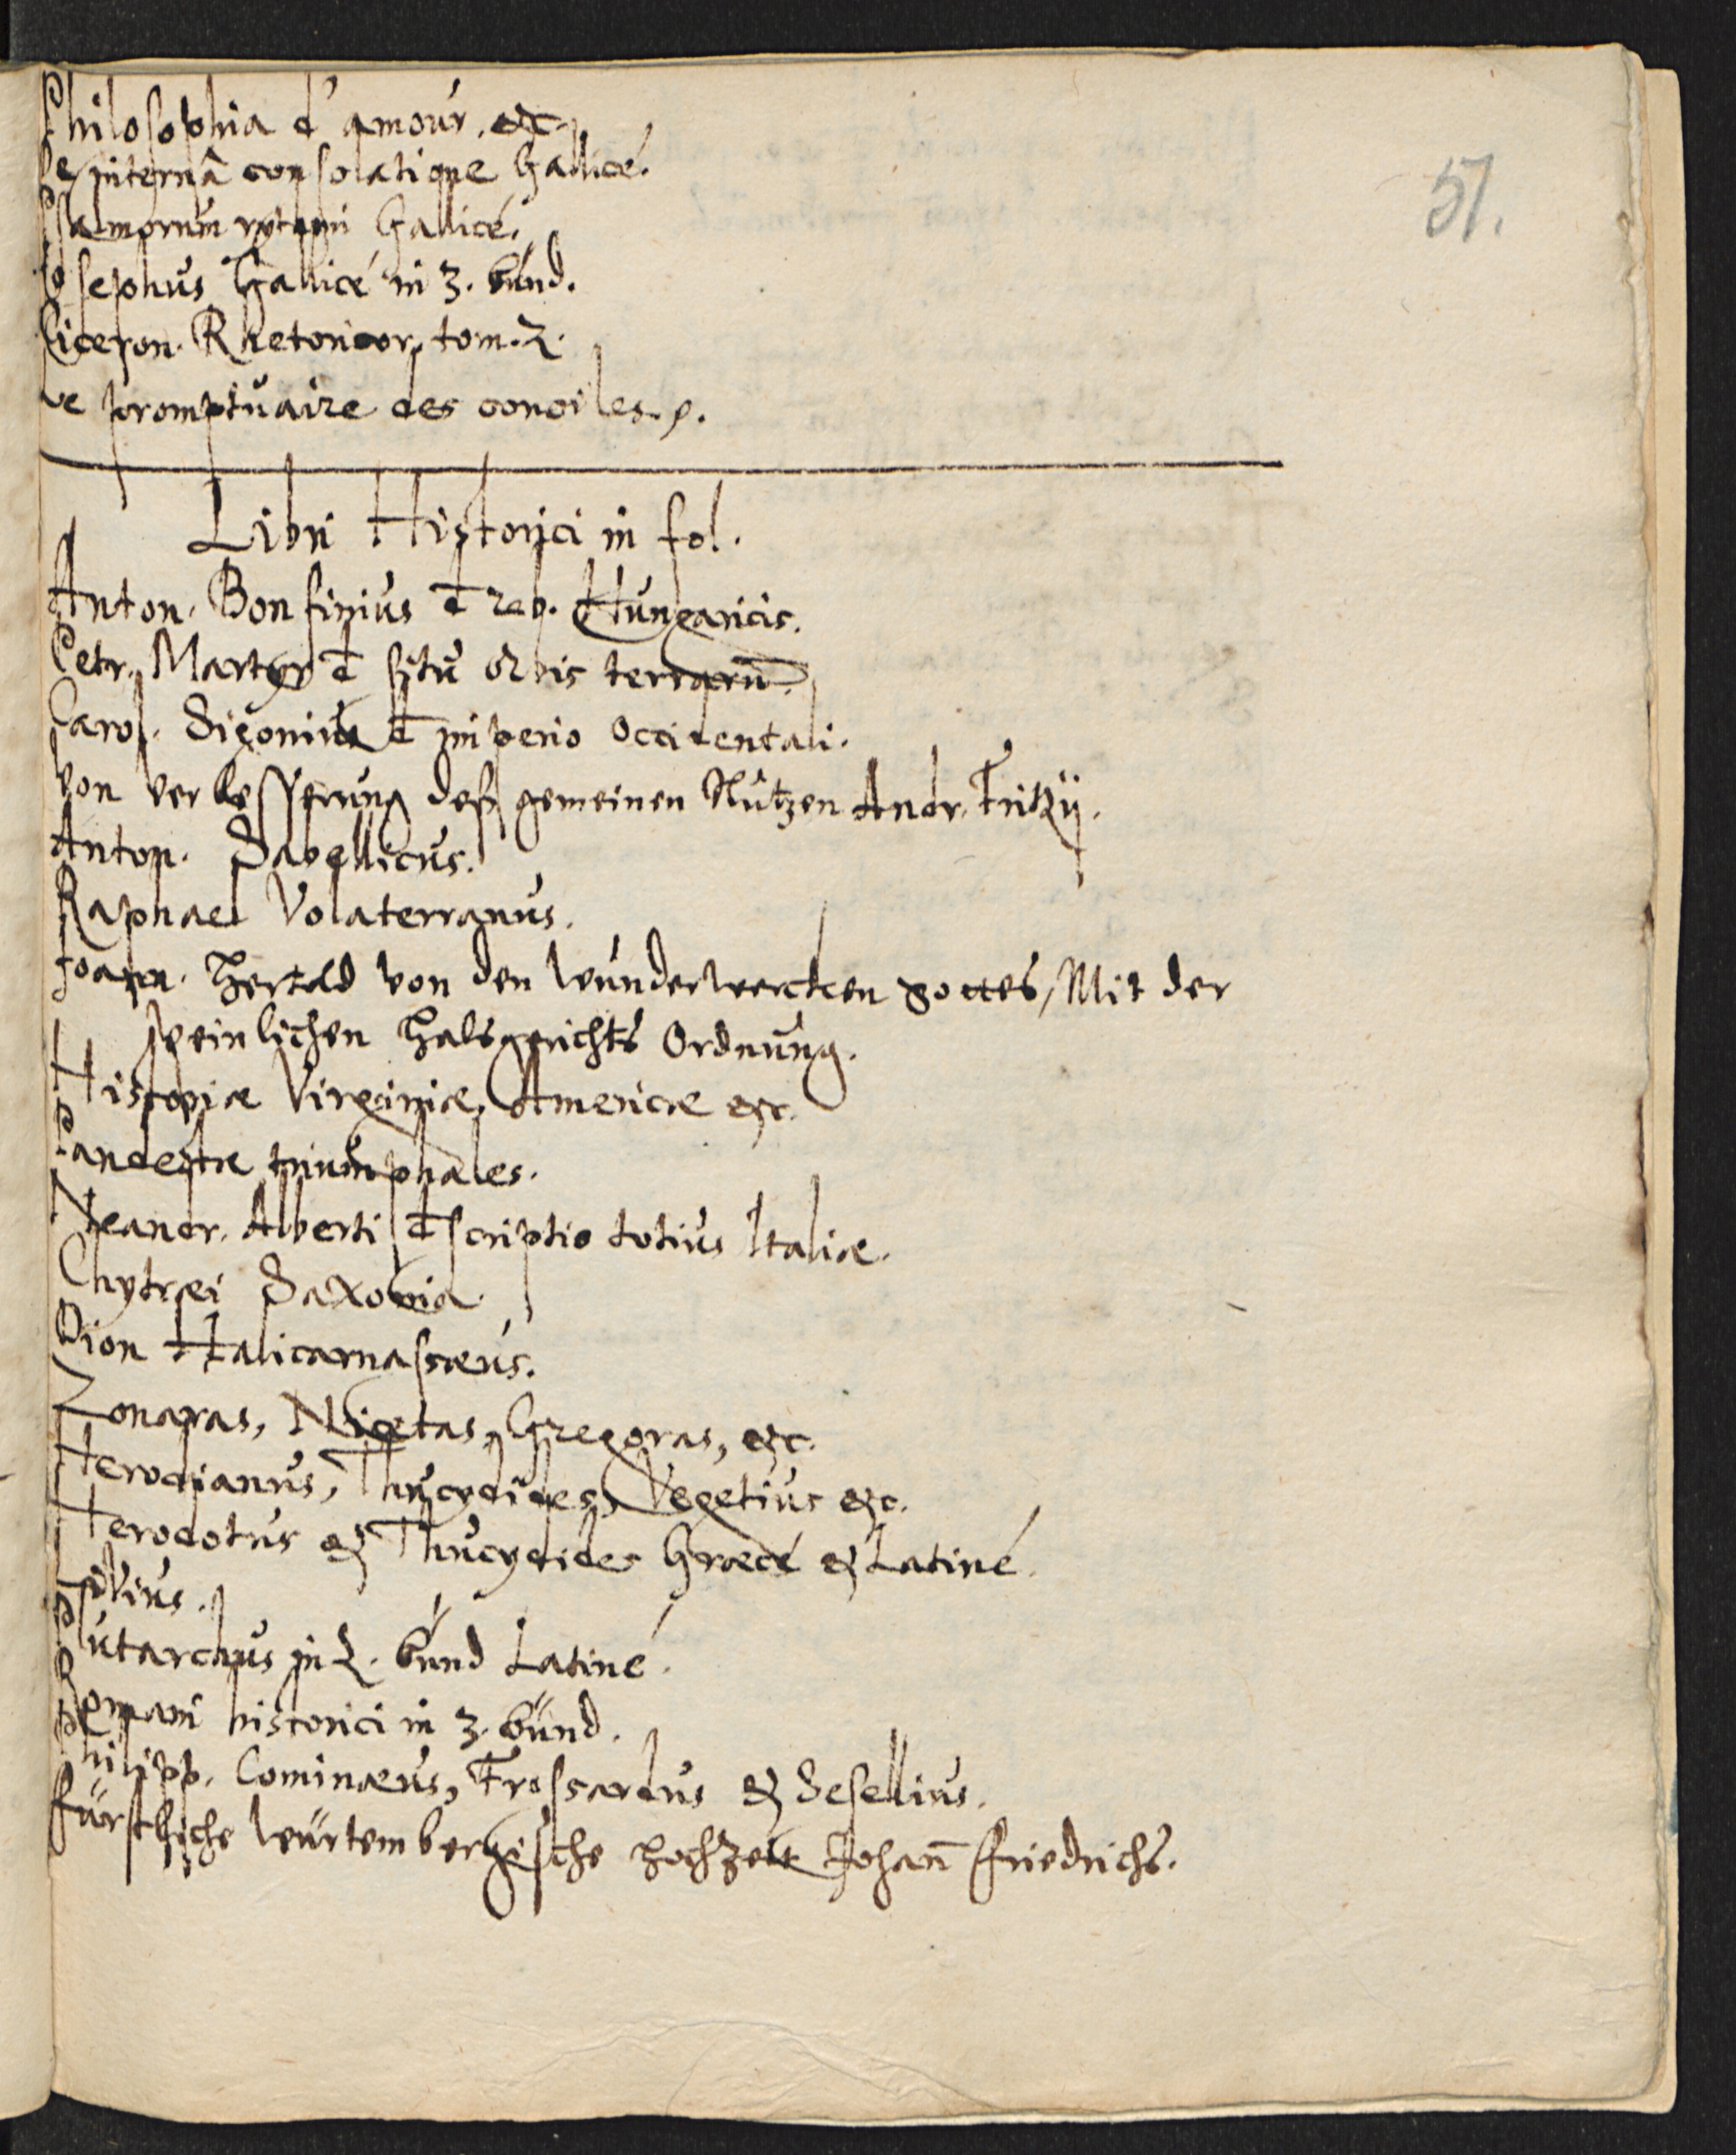 Philosophia d'amour. etc.
De internâ consolatione Gallicé.
Psalmorum rytmi Gallicé.
Josephus Gallicé in 3. bünd.
Ciceron. Rhetoricor. tom. 2.
Le promptuaire des conciles.
51.
Libri Historici in fol.
Anton. Bonfinius de reb. Hungaricis.
Petr. Martyr de situ orbis terrarū.
Carol. Sigonius de imperio Occidentali.
Von verbesserung deß gemeinen Nutzen Andr. Fritzij.
Anton. Sabellicus.
Raphael Volaterranus.
Joann. Herold von den wunderwercken gottes, Mit der
peinlichen Halsgerichts Ordnung.
Historiæ Virginiæ, Americæ etc.
Pandectæ triumphales.
Leandr. Alberti descriptio totius Italiæ.
Chytræi Saxonia.
Dion Halicarnasseus.
Zonaras, Nicetas, Gregoras, etc.
Herodianus, Thucydides, Vegetius etc.
Herodotus & Thucydides Græcé & Latiné.
Plutarchus in 2. bünd Latiné.
Romani historici in 3. bünd.
Philipp. Cominæus, Frossardus & Sesellius.
Fürstliche Würtembergische Hochzeit Johañ Friedrichs.